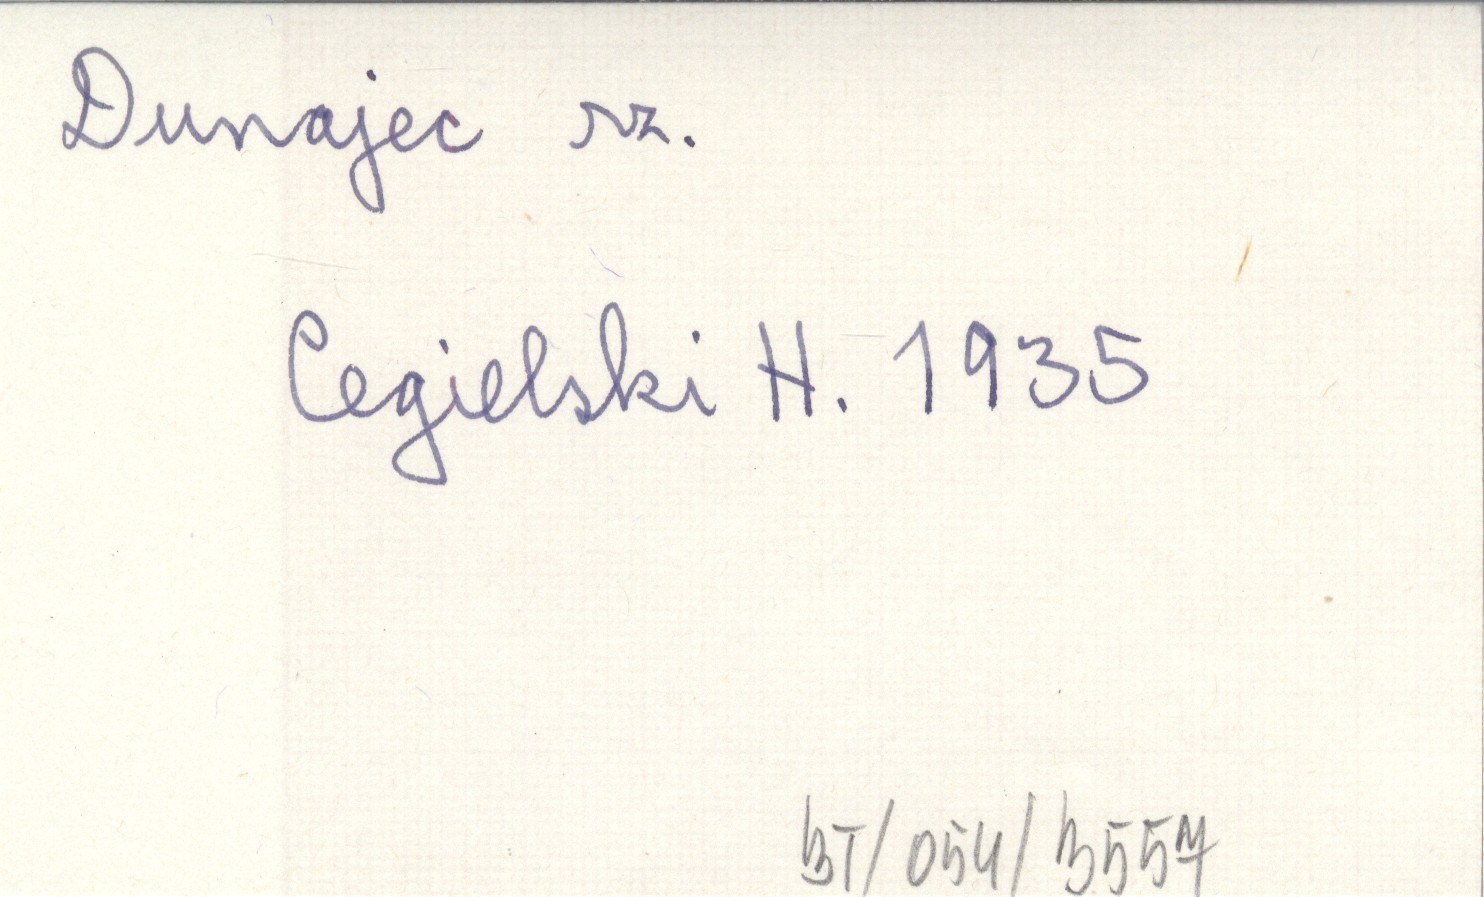 Dunajec rz.
Cegielski H. 1935
BT/054/B557